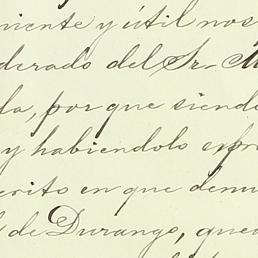 niente y útil nos
derado del Sr. M
da, por que siendo
y habiendolo espr
crito en que denu
l de Durango, que